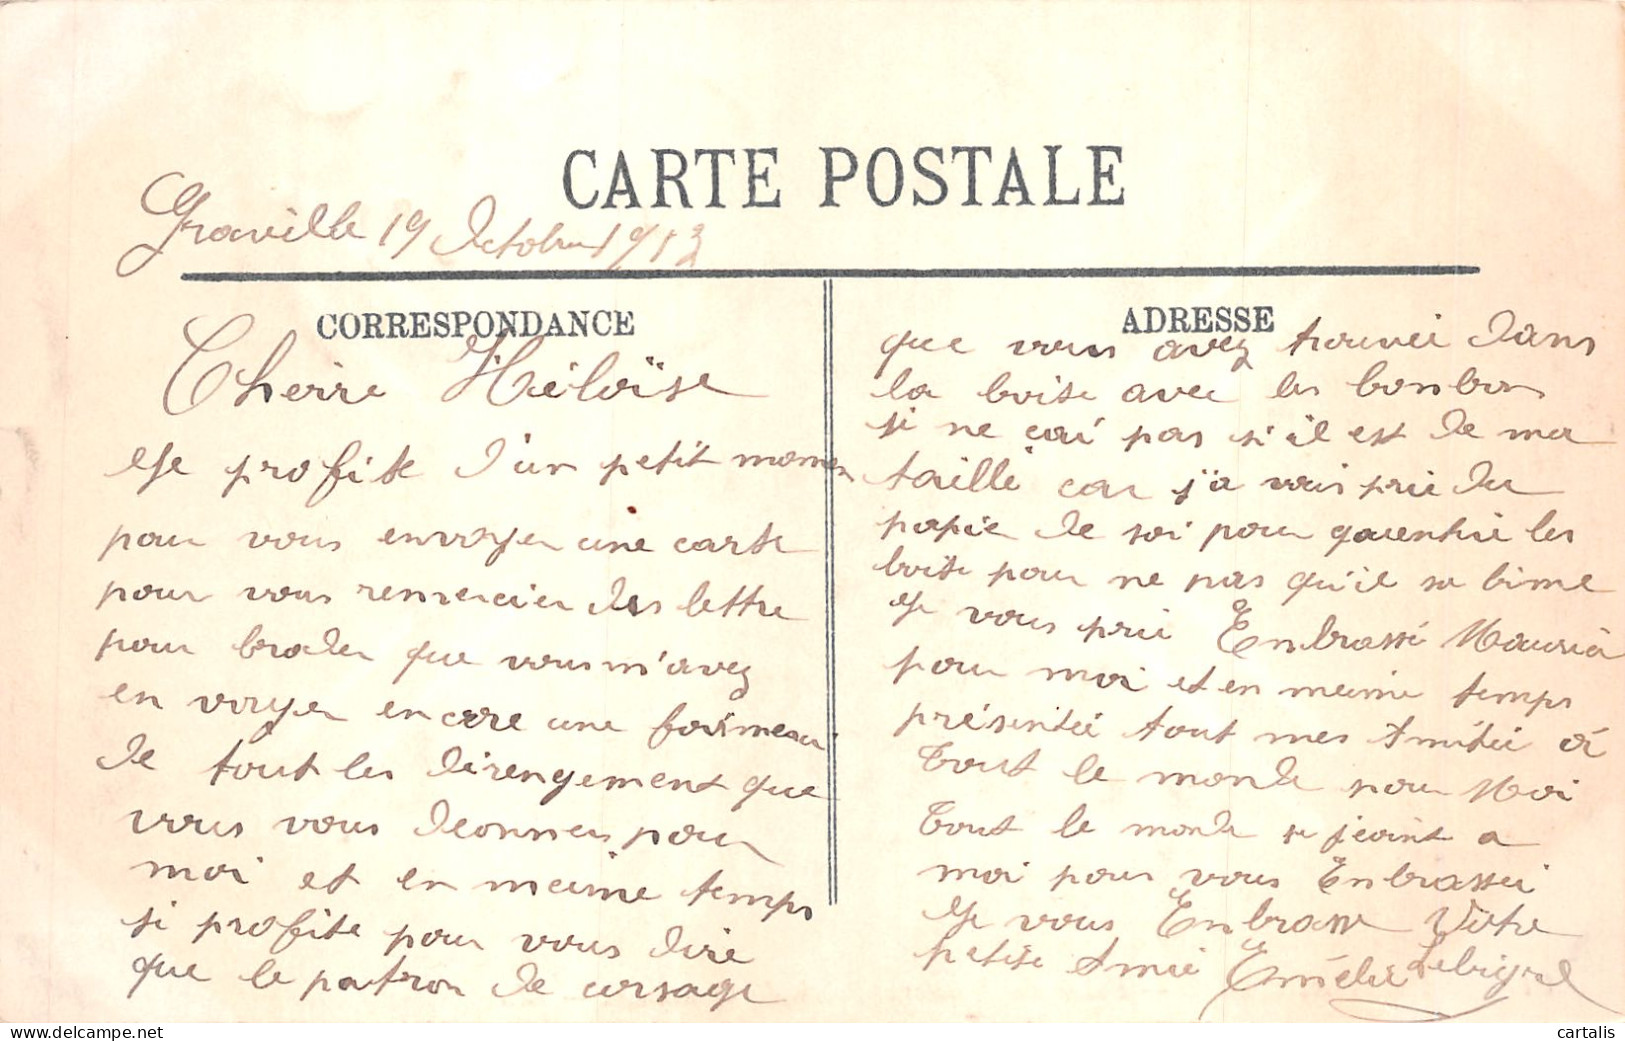 CARTE POSTALE
Graville 19 Octobre 1913
CORRESPONDANCE
Cheirre Héloïse
Je profite d'un petit momen
pour vous envoyer une carte
pour vous remercier des lettre
pour broder que vous m'avez
en voyer encore une
de tout les direngement que
vous vous deonner pour
moi et en meime temps
ji profite pour vous dire
que le patron de corsage
ADRESSE
que vous avez trouvei dans
la boite avec les bonbons
ji ne çai pas si il est de ma
taille car j'a vais prie du
papie de soi pour garentire les
boite pour ne pas qu'il sa bime
Je vous prie Enbrassé
pour moi et en meime temps
présentée tout mes Amitée à
Tout le monde pour Moi
Tout le monde se jeoint a
moi pour vous Enbrassei
Je vous Enbrasse Votre
petite Amie Emélie
cartalis